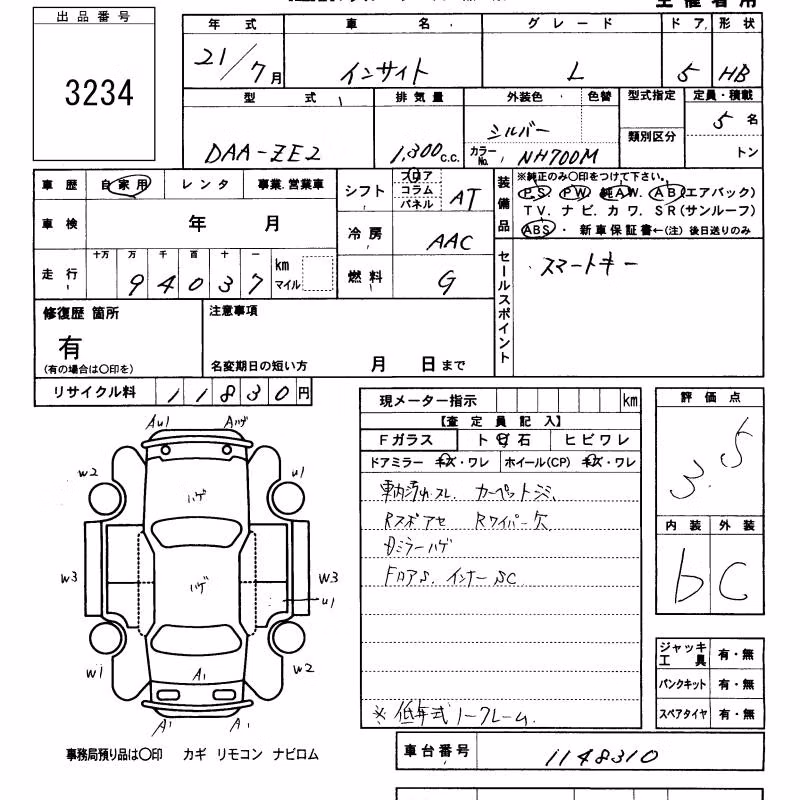 出品番号
3234
年式 車名 グレード ドア 形状
21/7月 インサイト L 5 HB
型式 排気量 外装色 色替 型式指定 定員・積載
DAA-ZE2 1,300c.c. シルバー カラーNo. NH700M 類別区分 5名
トン
車歴 自家用 レンタ 事業.営業車 シフト フロア コラム パネル AT
装備品 ※純正のみ〇印をつけて下さい。
PS PW 純AW. AB(エアバック)
TV. ナビ. カワ. SR(サンルーフ)
ABS・ 新車保証書←(注) 後日送りのみ
車検 年 月 冷房 AAC
走行 十万 万 千 百 十 一
94037 km マイル 燃料 G
セールスポイント スマートキー
修復歴 箇所 注意事項
有
(有の場合は〇印を) 名変期日の短い方 月 日まで
リサイクル料 11830円
現メーター指示 km
【査定員記入】
Fガラス トビ石 ヒビワレ
ドアミラー キズ・ワレ ホイール(CP) キズ・ワレ
車内汚れスレ カーペットジミ
Rスポアセ Rワイパー欠
Dミラーハゲ
FロアS. インナーSC
※低年式ノークレーム.
評価点
3.5
内装 外装
b C
ジャッキ工具 有・無
パンクキット 有・無
スペアタイヤ 有・無
AU1 Aハゲ
W2 U1
ハゲ
W3 ハゲ W3
U1
W1 A1 W2
A1 A1
事務局預り品は〇印 カギ リモコン ナビロム
車台番号 1148310